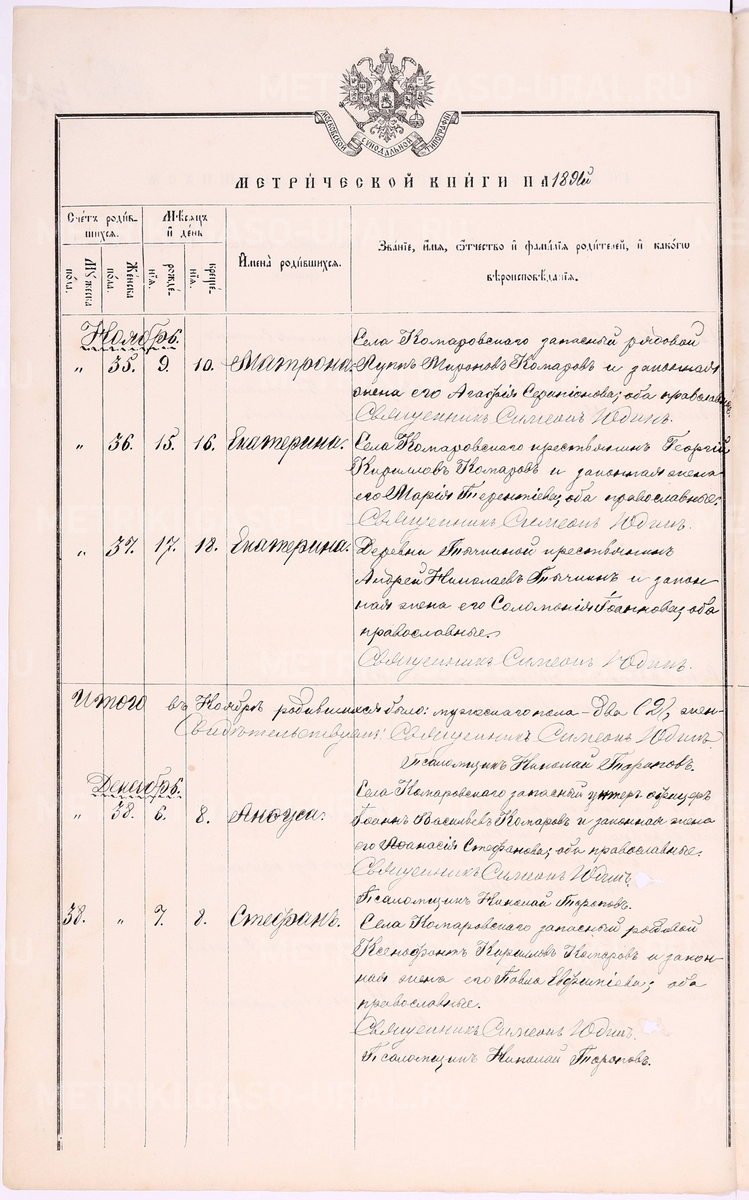 МОСКОВСКОЙ СѴНОДАЛЬНОЙ ТИПОГРАФІИ
МЕТРИ́ЧЕСКОЙ КНИ́ГИ НА 189
Сче́тъ роди́вшихся.
Мѣ́сяцъ и де́нь
Имена̀ роди́вшихся.
Зва́нїе, и́мя, о́тчество и фами́лїя роди́телей, и како́гѡ вѣроисповѣ́данїя.
Му́жеска по́ла.
Же́нска по́ла.
рожде́нїя.
креще́нїя.
Ноябрь.
Села Комаровскаго запасный рядовой
„ 35. 9. 10. Матрона. Лупп Мироновъ Комаровъ и законная
жена его Агафія Серапіонова; оба православн.
Священникъ Симеонъ Юдинъ.
„ 36. 15. 16. Екатерина. Села Комаровскаго крестьянинъ Георгій
Кирилловъ Комаровъ и законная жена
его Марія Терентіева; оба православные.
Священникъ Симеонъ Юдинъ.
„ 37. 17. 18. Екатерина. Деревни Тычкиной крестьянинъ
Андрей Николаевъ Тычкинъ и закон-
ная жена его Соломонія Іоаннова; оба
православные.
Священникъ Симеонъ Юдинъ.
Итого въ Ноябрѣ родившихся было: мужескаго пола – два (2), жен-
Свидѣтельствуютъ: Священникъ Симеонъ Юдинъ.
Псаломщикъ Николай Тороповъ.
Декабрь.
Села Комаровскаго запасный унтеръ офицеръ
„ 38. 6. 8. Анфуса. Іоаннъ Васильевъ Комаровъ и законная жена
его Аѳанасія Стефанова; оба православные.
Священникъ Симеонъ Юдинъ.
Псаломщикъ Николай Тороповъ.
38. „ 7. 8. Стефанъ. Села Комаровскаго запасный рядовой
Ксенофонтъ Кирилловъ Комаровъ и закон-
ная жена его Павла Евфиміева; оба
православные.
Священникъ Симеонъ Юдинъ.
Псаломщикъ Николай Тороповъ.
METRIKI.GASO-URAL.RU